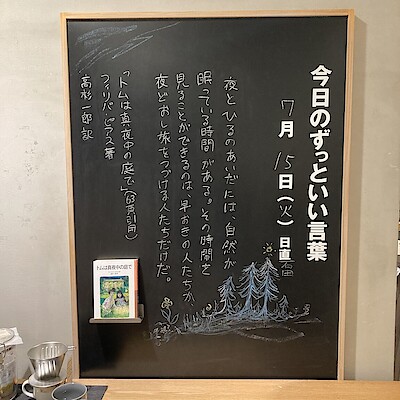 今日のずっといい言葉
7月15日(火)日直
夜とひるのあいだには、自然が
眠っている時間がある。その時間を
見ることができるのは、早おきの人たちか、
夜どおし旅をつづける人たちだけだ。
「トムは真夜中の庭で」
フィリパ・ピアス著
高杉一郎訳
トムは真夜中の庭で